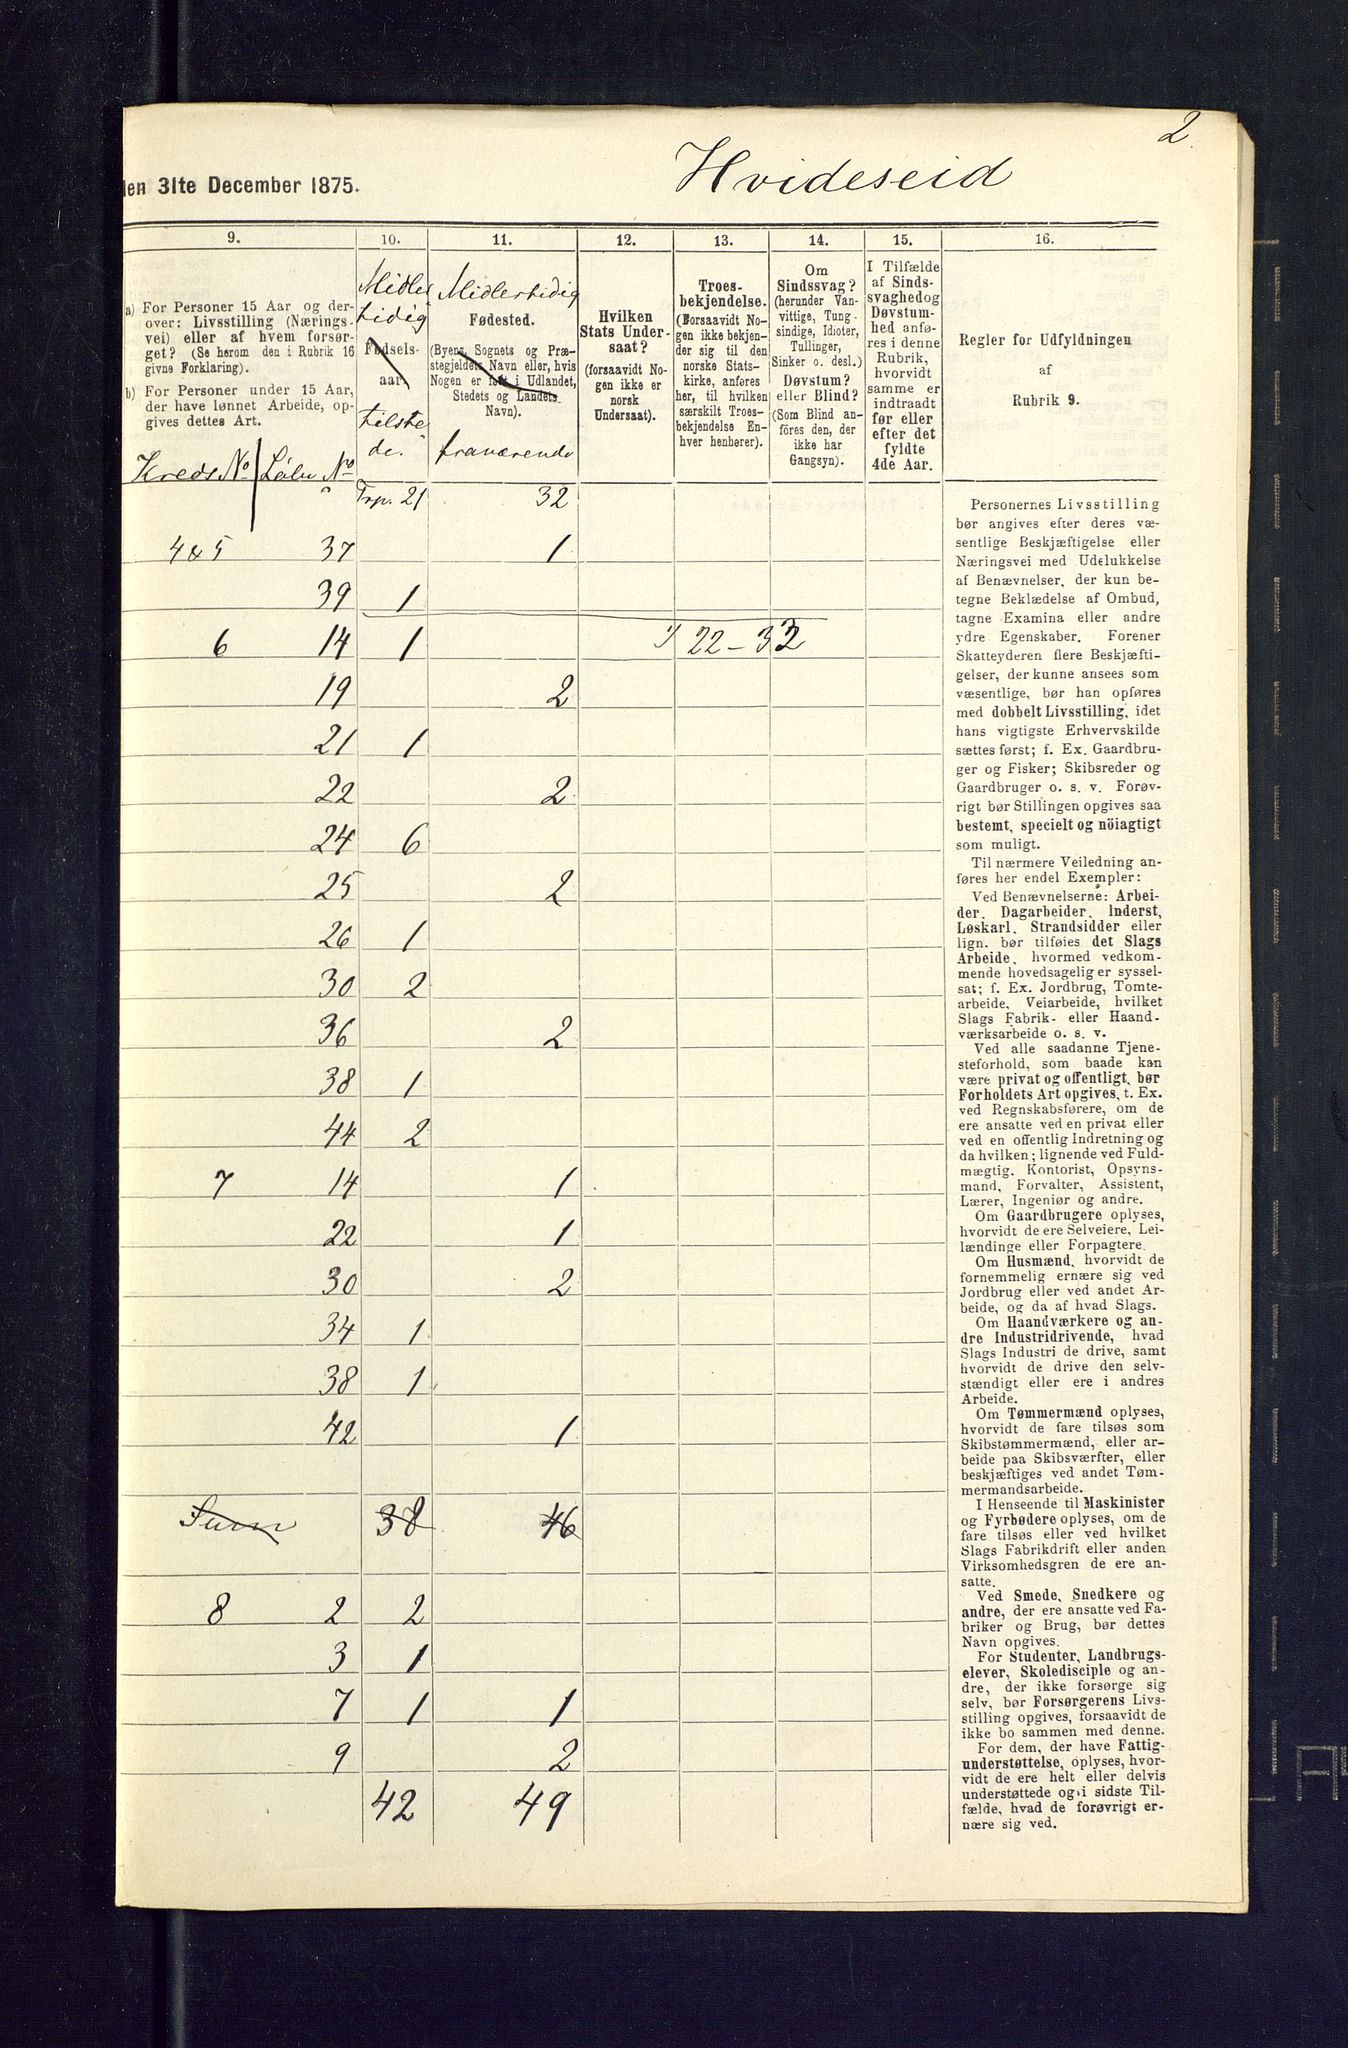 2.
den 31te December 1875.
Hvideseid
9.
10.
11.
12.
13.
14.
15.
16.
a) For Personer 15 Aar og der-
over: Livsstilling (Nærings-
vei) eller af hvem forsør-
get? (Se herom den i Rubrik 16
givne Forklaring).
b) For Personer under 15 Aar,
der have lønnet Arbeide, op-
gives dettes Art.
Kreds No Løbe No
Midler
tidig
Fødsels-
aar.
tilste
de.
Midlertidig
Fødested.
(Byens, Sognets og Præ-
stegjeldets Navn eller, hvis
Nogen er født i Udlandet,
Stedets og Landets
Navn).
fraværende
Hvilken
Stats Under-
saat?
(forsaavidt No-
gen ikke er
norsk
Undersaat).
Troes-
bekjendelse.
(Forsaavidt No-
gen ikke bekjen-
der sig til den
norske Stats-
kirke, anføres
her, til hvilken
særskilt Troes-
bekjendelse En-
hver henhører).
Om
Sindssvag?
(herunder Van-
vittige, Tung-
sindige, Idioter,
Tullinger,
Sinker o. desl.)
Døvstum?
eller Blind?
(Som Blind an-
føres den, der
ikke har
Gangsyn).
I Tilfælde
af Sinds-
svaghed og
Døvstum-
hed anfø-
res i denne
Rubrik,
hvorvidt
samme er
indtraadt
før eller
efter det
fyldte
4de Aar.
Regler for Udfyldningen
af
Rubrik 9.
Trp. 21 32
4&5 37 1
39 1
6 14 1 22-32
19 2
21 1
22 2
24 6
25 2
26 1
30 2
36 2
38 1
44 2
7 14 1
22 1
30 2
34 1
38 1
42 1
Sum 38 46
8 2 2
3 1
7 1 1
9 2
42 49
Personernes Livsstilling
bør angives efter deres væ-
sentlige Beskjæftigelse eller
Næringsvei med Udelukkelse
af Benævnelser, der kun be-
tegne Beklædelse af Ombud,
tagne Examina eller andre
ydre Egenskaber. Forener
Skatteyderen flere Beskjæfti-
gelser, der kunne ansees som
væsentlige, bør han opføres
med dobbelt Livsstilling, idet
hans vigtigste Erhvervskilde
sættes først; f. Ex. Gaardbru-
ger og Fisker; Skibsreder og
Gaardbruger o. s. v. Forøv-
rigt bør Stillingen opgives saa
bestemt, specielt og nöiagtigt
som muligt.
Til nærmere Veiledning an-
føres her endel Exempler:
Ved Benævnelserne: Arbei-
der, Dagarbeider, Inderst,
Løskarl, Strandsidder eller
lign. bør tilføies det Slags
Arbeide, hvormed vedkom-
mende hovedsagelig er syssel-
sat; f. Ex. Jordbrug, Tomte-
arbeide, Veiarbeide, hvilket
Slags Fabrik- eller Haand-
værksarbeide o. s. v.
Ved alle saadanne Tjene-
steforhold, som baade kan
være privat og offentligt, bør
Forholdets Art opgives, t. Ex.
ved Regnskabsførere, om de
ere ansatte ved en privat eller
ved en offentlig Indretning og
da hvilken; lignende ved Fuld-
mægtig, Kontorist, Opsyns-
mand, Forvalter, Assistent,
Lærer, Ingeniør og andre.
Om Gaardbrugere oplyses,
hvorvidt de ere Selveiere, Lei-
lændinge eller Forpagtere.
Om Husmænd, hvorvidt de
fornemmelig ernære sig ved
Jordbrug eller ved andet Ar-
beide, og da af hvad Slags.
Om Haandværkere og an-
dre Industridrivende, hvad
Slags Industri de drive, samt
hvorvidt de drive den selv-
stændigt eller ere i andres
Arbeide.
Om Tømmermænd oplyses,
hvorvidt de fare tilsøs som
Skibstømmermænd, eller ar-
beide paa Skibsværfter, eller
beskjæftiges ved andet Tøm-
mermandsarbeide.
I Henseende til Maskinister
og Fyrbødere oplyses, om de
fare tilsøs eller ved hvilket
Slags Fabrikdrift eller anden
Virksomhedsgren de ere an-
satte.
Ved Smede, Snedkere og
andre, der ere ansatte ved Fa-
briker og Brug, bør dettes
Navn opgives.
For Studenter, Landbrugs-
elever, Skoledisciple og an-
dre, der ikke forsørge sig
selv, bør Forsørgerens Livs-
stilling opgives, forsaavidt de
ikke bo sammen med denne.
For dem, der have Fattig-
understøttelse, oplyses, hvor-
vidt de ere helt eller delvis
understøttede og i sidste Til-
fælde, hvad de forøvrigt er-
nære sig ved.